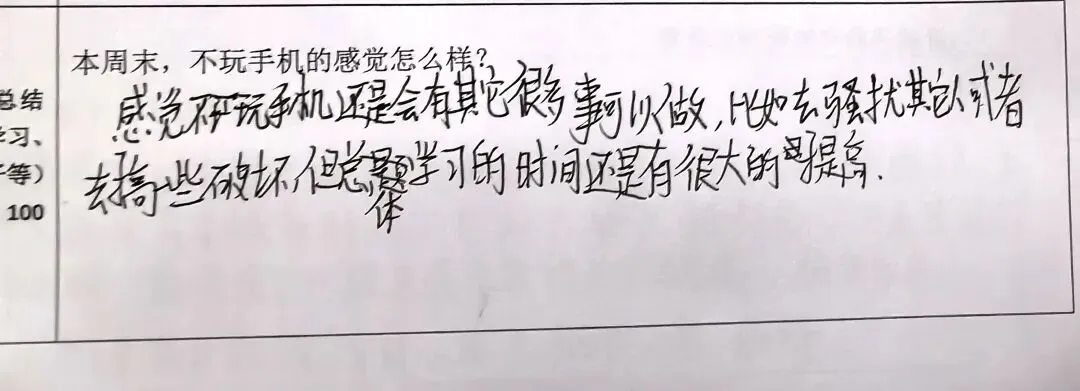 本周末，不玩手机的感觉怎么样？
总结
学习、
等）
100
感觉不玩手机还是会有其它很多事可以做，比如去骚扰其它人或者
去搞一些破坏，但总体学习的时间还是有很大的提高.